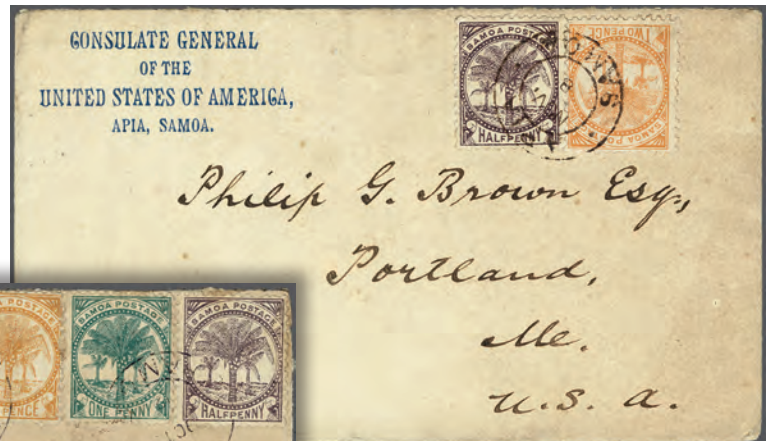 CONSULATE GENERAL
OF THE
UNITED STATES OF AMERICA,
APIA, SAMOA.
SAMOA POSTAGE
HALFPENNY
TWO PENCE
SAMOA
Philip G. Brown Esq,
Portland,
Me.
U. S. A.
POSTAGE
PENCE
SAMOA POSTAGE
ONE PENNY
SAMOA POSTAGE
HALFPENNY